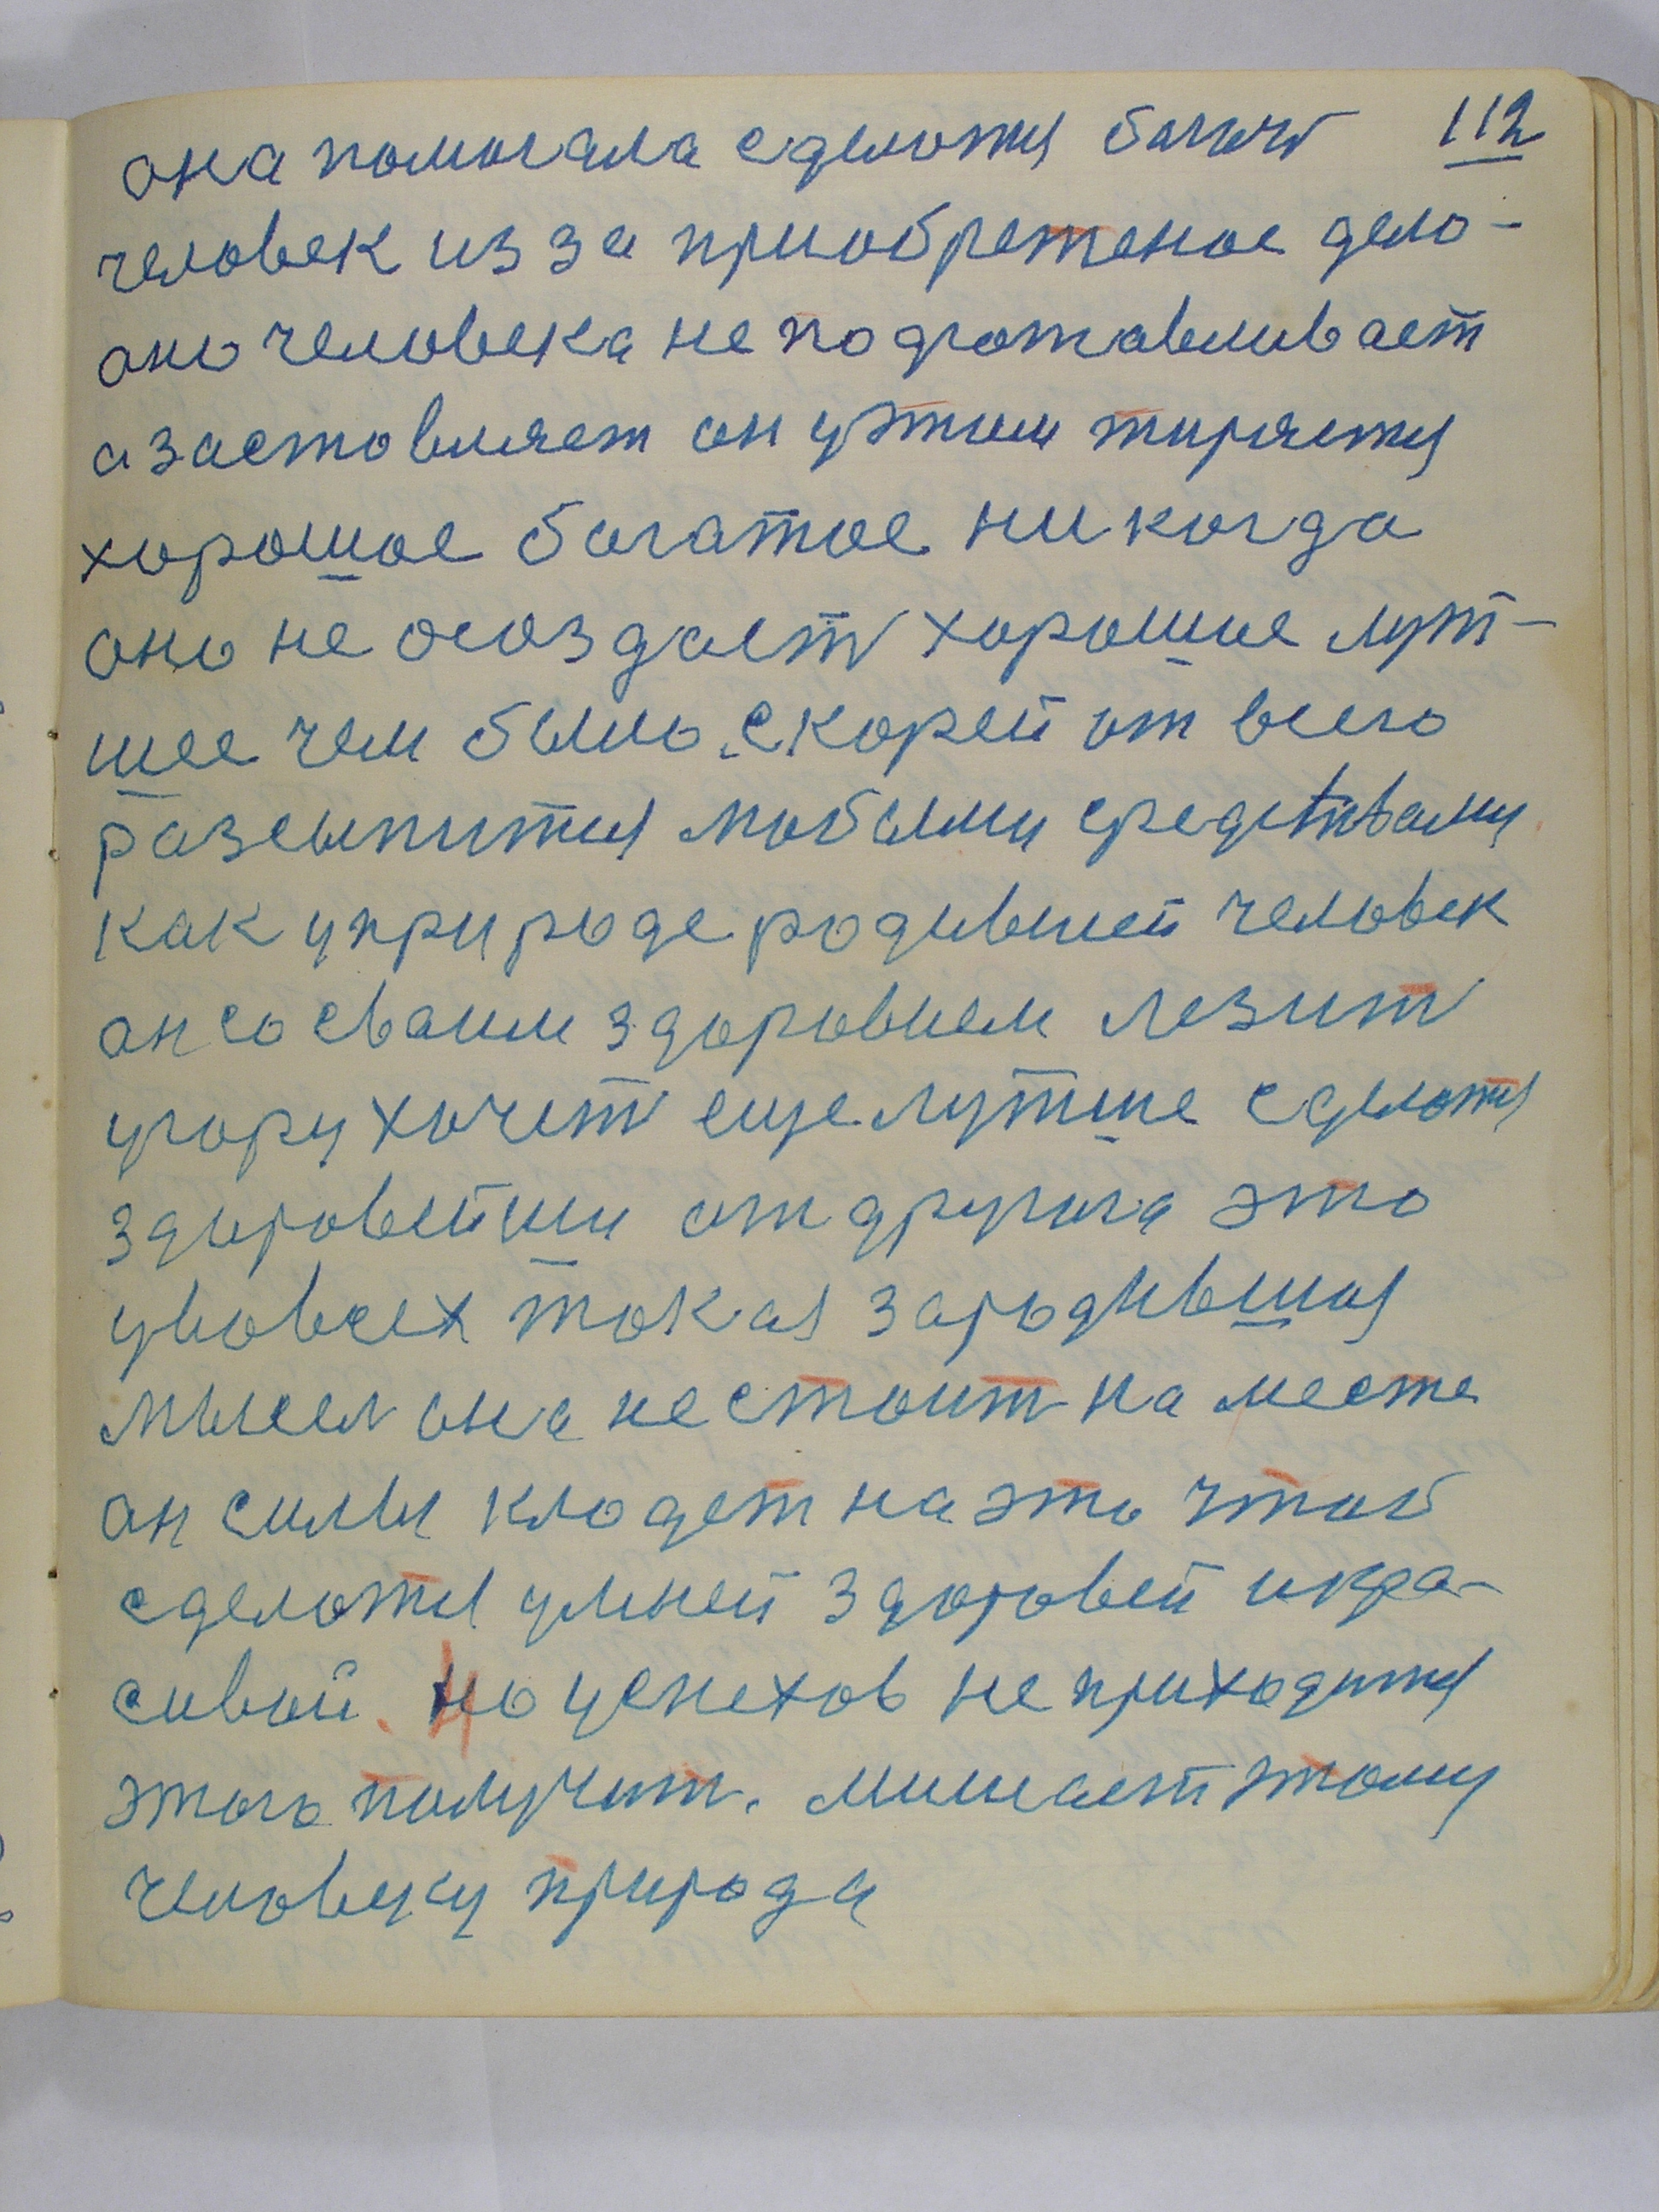 она помогала сделотся богачь 112
человек из за приобретеное дело-
оно человека не подготавливает
а заставляет он у этим тирятся
хорошое богатое ни когда
оно не осоздаеть хорошое лут-
шее чем было. скорей от всего
разсыпится любыми средствами
как у природе родившей человек
он со сваим здоровием лезить
угору хочеть еще лутше сделотся
здоровейши от другога это
уво всех токая зародившая
мысел она не стоит на месте
он силы кладет на это чтоб
сделотся умней здоровей и кра-
сивой. но успехов не приходится
этого получит. мишает этому
человеку природа